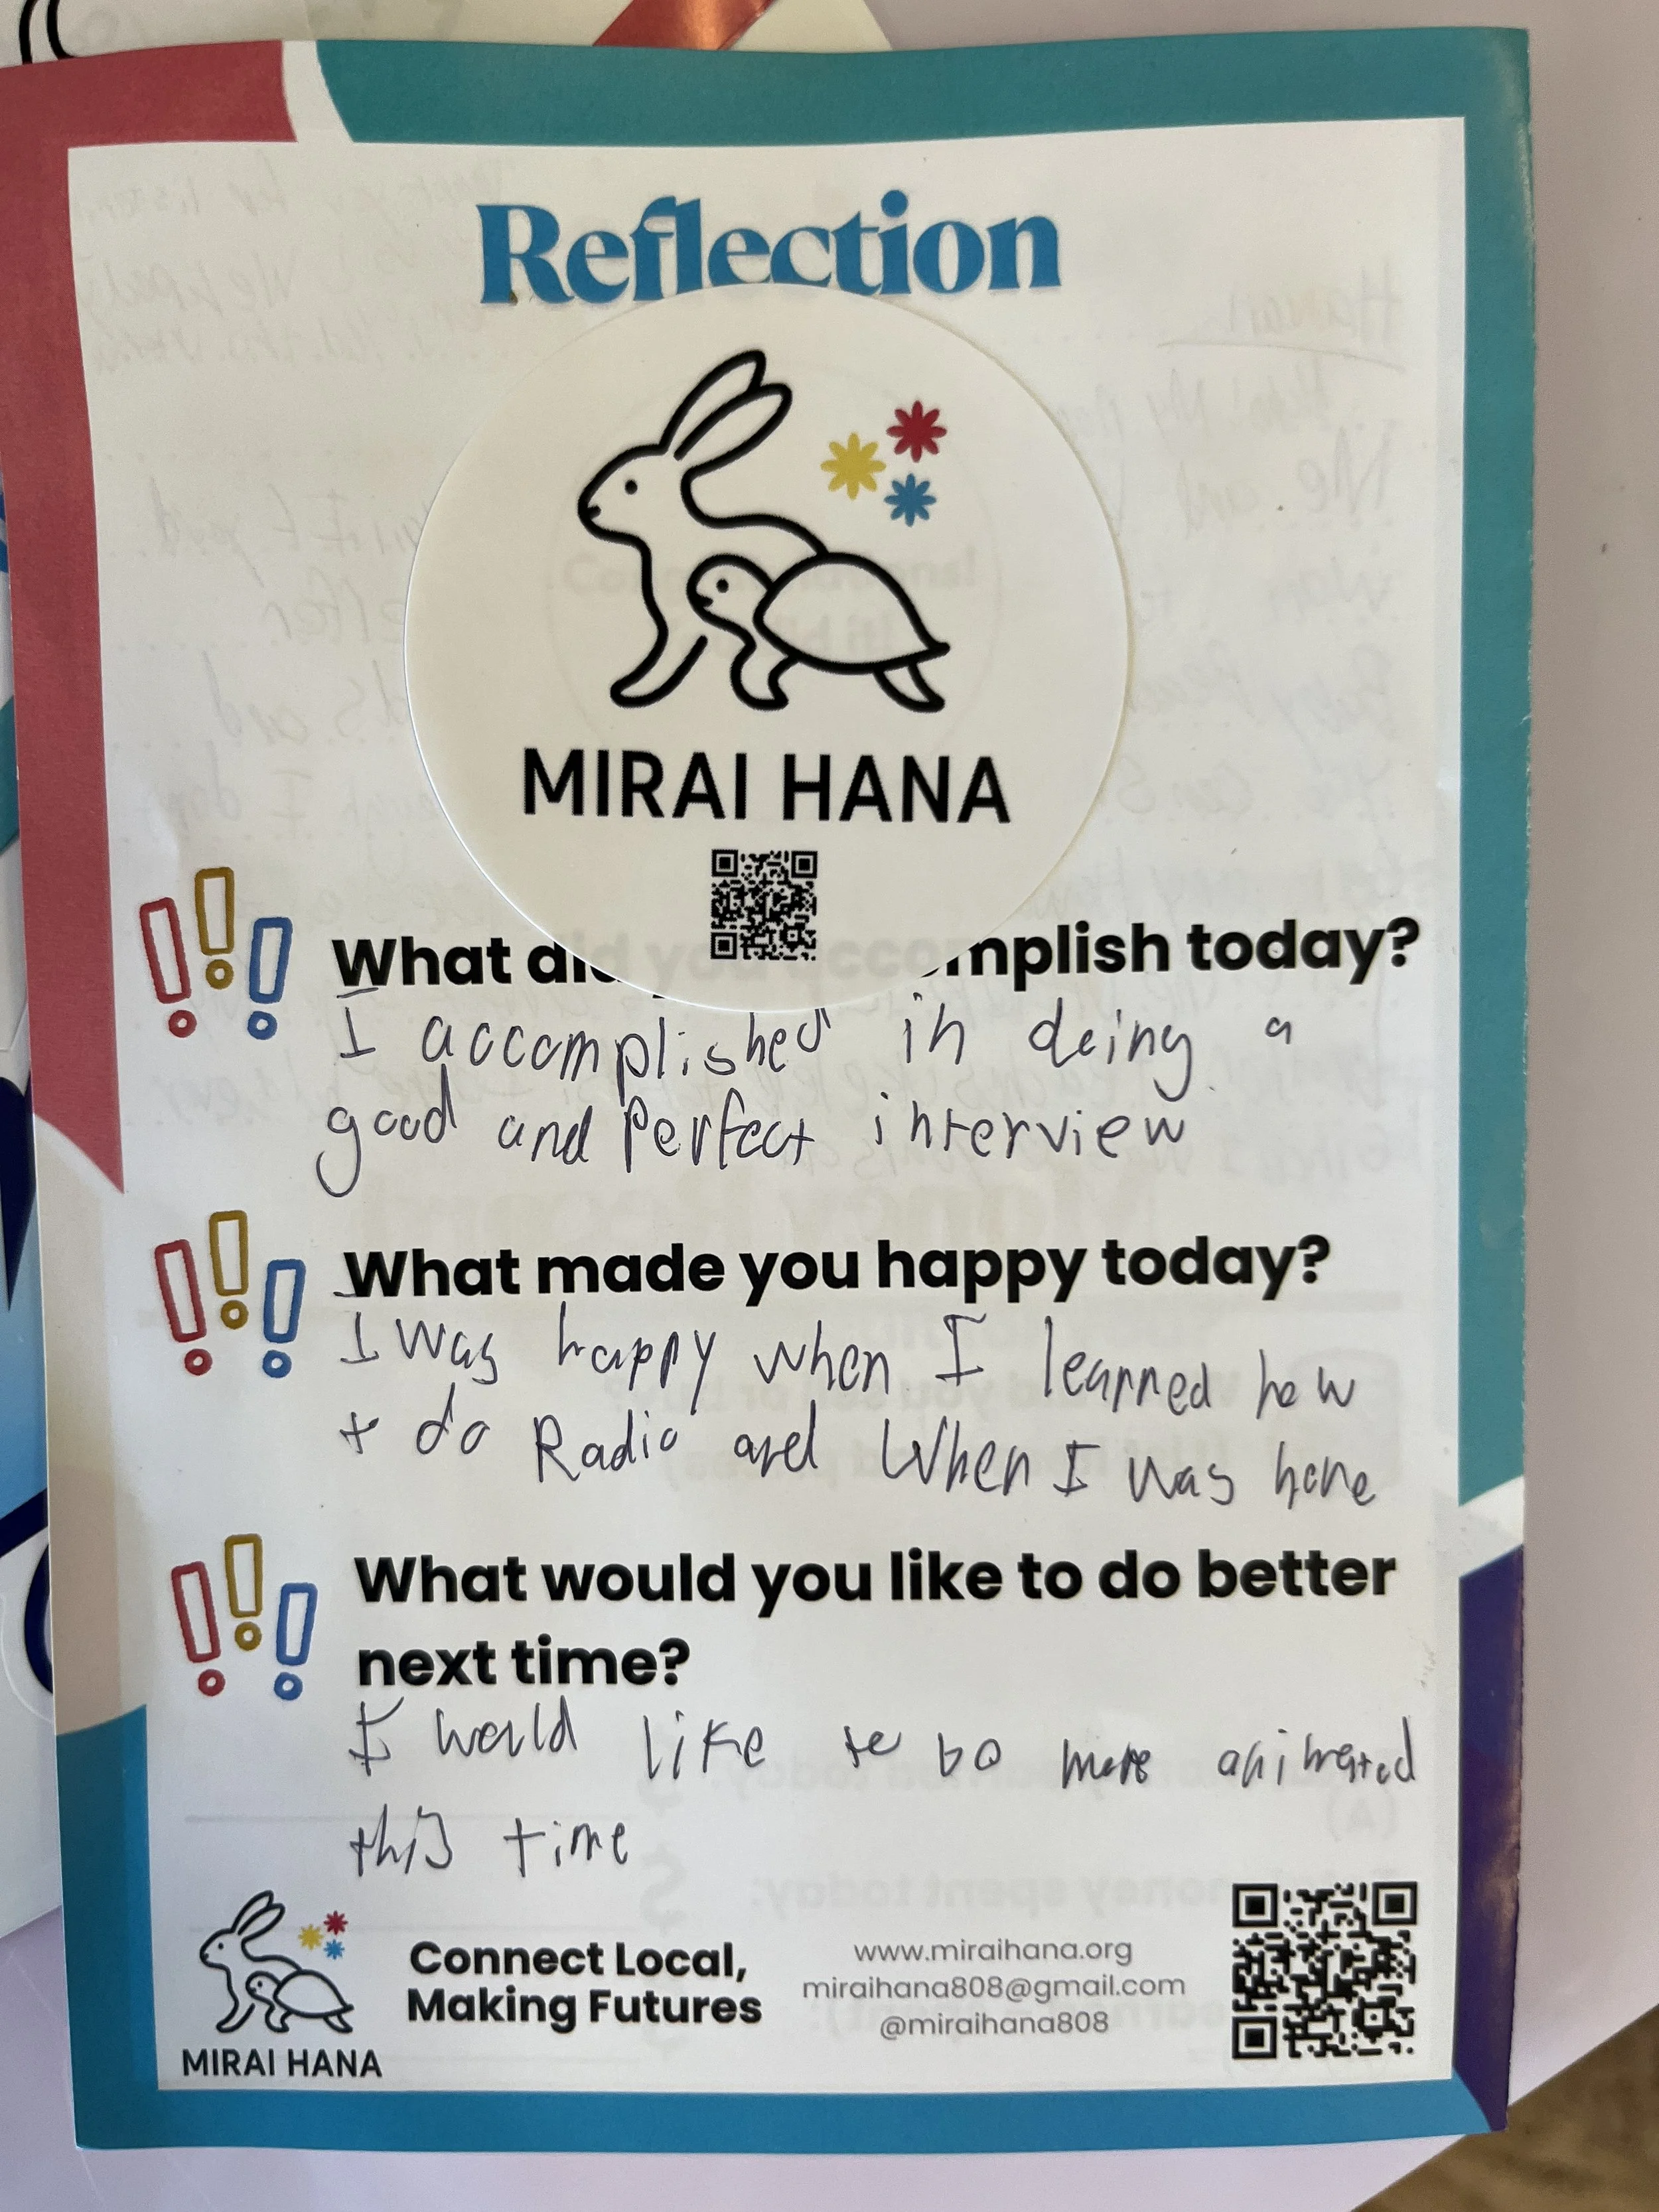 Reflection
MIRAI HANA
What did you accomplish today?
I accomplished in doing a
good and Perfect interview
What made you happy today?
I was happy when I learned how
t do Radio and When I was here
What would you like to do better
next time?
I would like to be more animated
this time
MIRAI HANA
Connect Local,
Making Futures
www.miraihana.org
miraihana808@gmail.com
@miraihana808